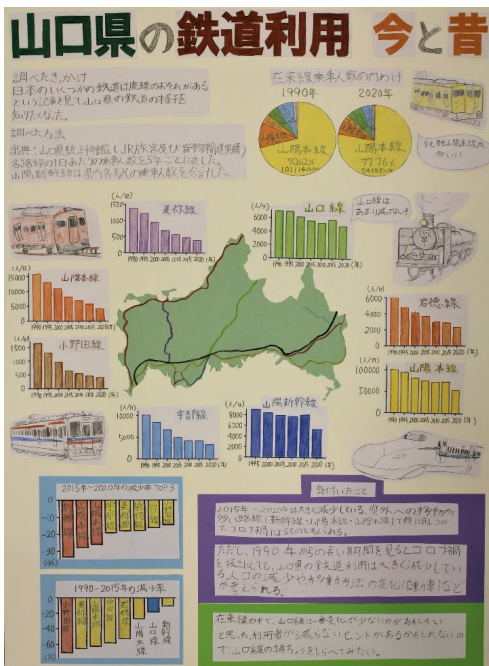 山口県の鉄道利用 今と昔
調べたきっかけ
日本のいくつかの鉄道は廃線のおそれがある
という記事を見て山口県の鉄道の様子を
知りたくなった。
調べた方法
出典:山口県統計年鑑(JR旅客及び貨物輸送実績)
在来線乗車人数のわけ
1990年
2020年
山陽本線
山陽本線
77.76%
山口線は
あまり減ってない
(人/日)
美祢線
1500
1000
500
0
1990 1995 2000 2005 2010 2015 2020 (年)
(人/日)
山口線
6000
4000
2000
0
1990 1995 2000 2005 2010 2015 2020 (年)
(人/日)
山陰本線
15000
10000
5000
0
1990 1995 2000 2005 2010 2015 2020 (年)
(人/日)
岩徳線
6000
4000
2000
0
1990 1995 2000 2005 2010 2015 2020 (年)
(人/日)
小野田線
1500
1000
500
0
1990 1995 2000 2005 2010 2015 2020 (年)
(人/日)
山陽本線
100000
50000
0
1990 1995 2000 2005 2010 2015 2020 (年)
(人/日)
宇部線
10000
5000
0
1990 1995 2000 2005 2010 2015 2020 (年)
(人/日)
山陽新幹線
8000
6000
4000
2000
0
1995 2000 2005 2010 2015 2020 (年)
2015年~2020年の減少率 TOP3
0
-10
-20
-30
(%)
新幹線
1990-2015年の減少率
0
-20
-40
-60
(%)
小野田線
美祢線
山陽本線
山口線
新幹線
気付いたこと
2015年~2020年は大きく減少している。県外への移動の
多い路線(新幹線・山陽本線・山陰本線)で特に目立つの
でコロナ禍によるものと考えられる。
ただし、1990年からの長い期間を見るとコロナ禍
を抜きにしても、山口県の鉄道利用は大きく減少してい
る。人口の減少や移動方法の変化(自動車)など
が考えられる。
在来線の中で、山口線は一番変化が少ないのがおもしろい
と思った。利用者が減らないヒントがあるかもしれないの
で山口線の特ちょうをしらべてみたい。